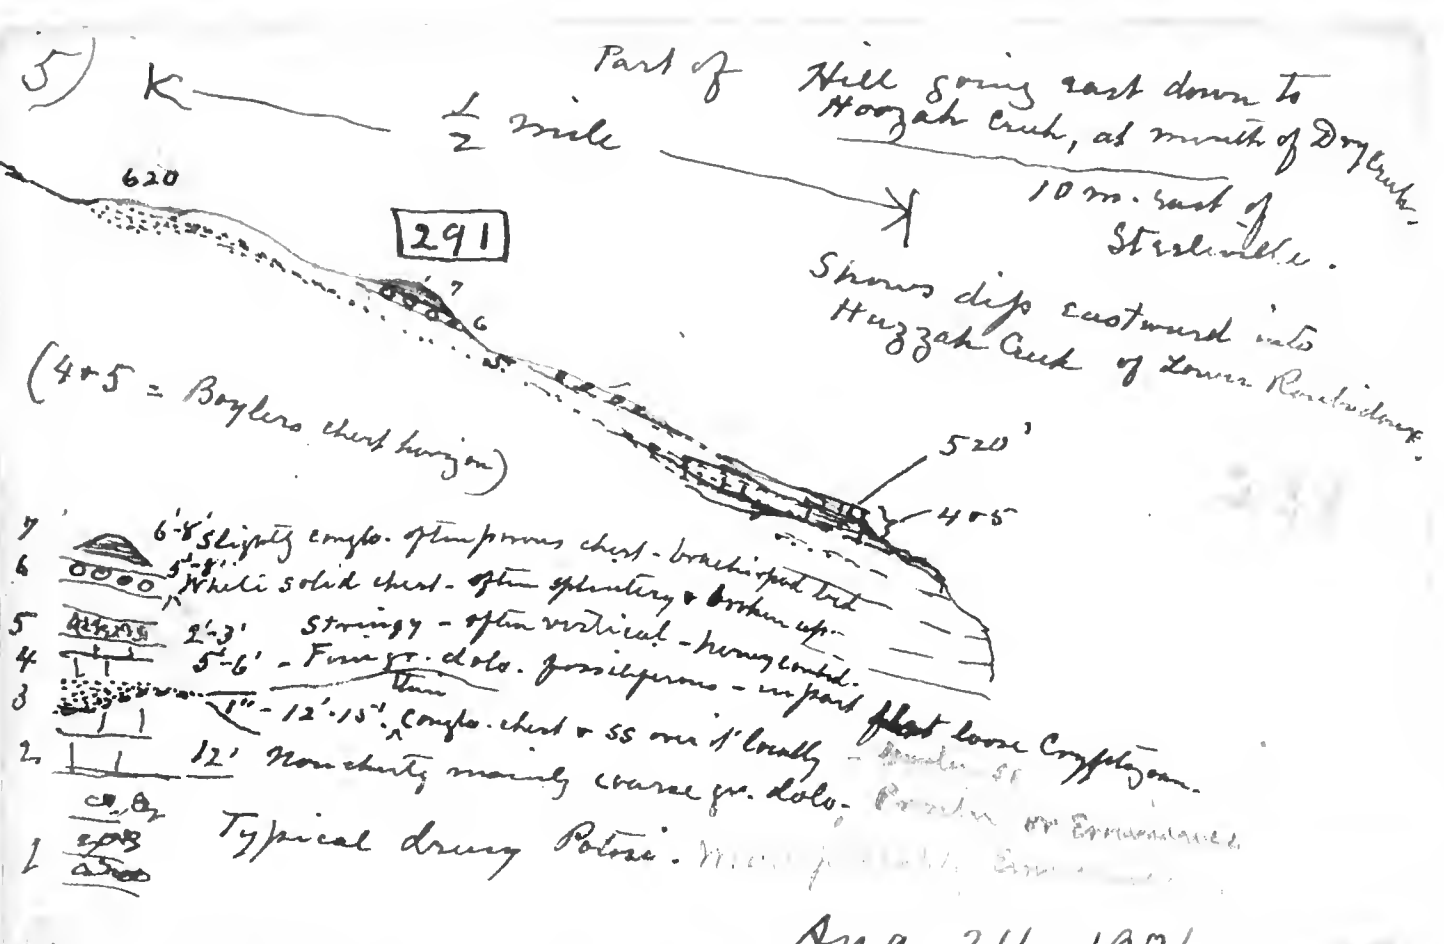 5)
Part of Hill going east down to
Hoozah Creek, at mouth of Dry Creek.
K ½ mile
10 m. east of
Steeleville.
620
291
7
6
5
Shows dip eastward into
Huzzah Creek of Lower Roubidoux.
(4+5 = Baylers chert horizon)
520'
4+5
7 6'-8' Slightly conglo. often porous chert - brachiopod bed
6 5'-8' White solid chert - often splintery & broken up -
5 2'-3' Stringy - often vertical - honeycombd.
4 5'-6' - Fine gr. dolo. fossiliferous - in part flat loose Cryptozoan.
3 1" - 12'-15'. thin conglo. chert & ss over it locally -
2 12' Noncherty mainly coarse gr. dolo. or Eminence
1 Typical drusy Potosi.
Aug 24